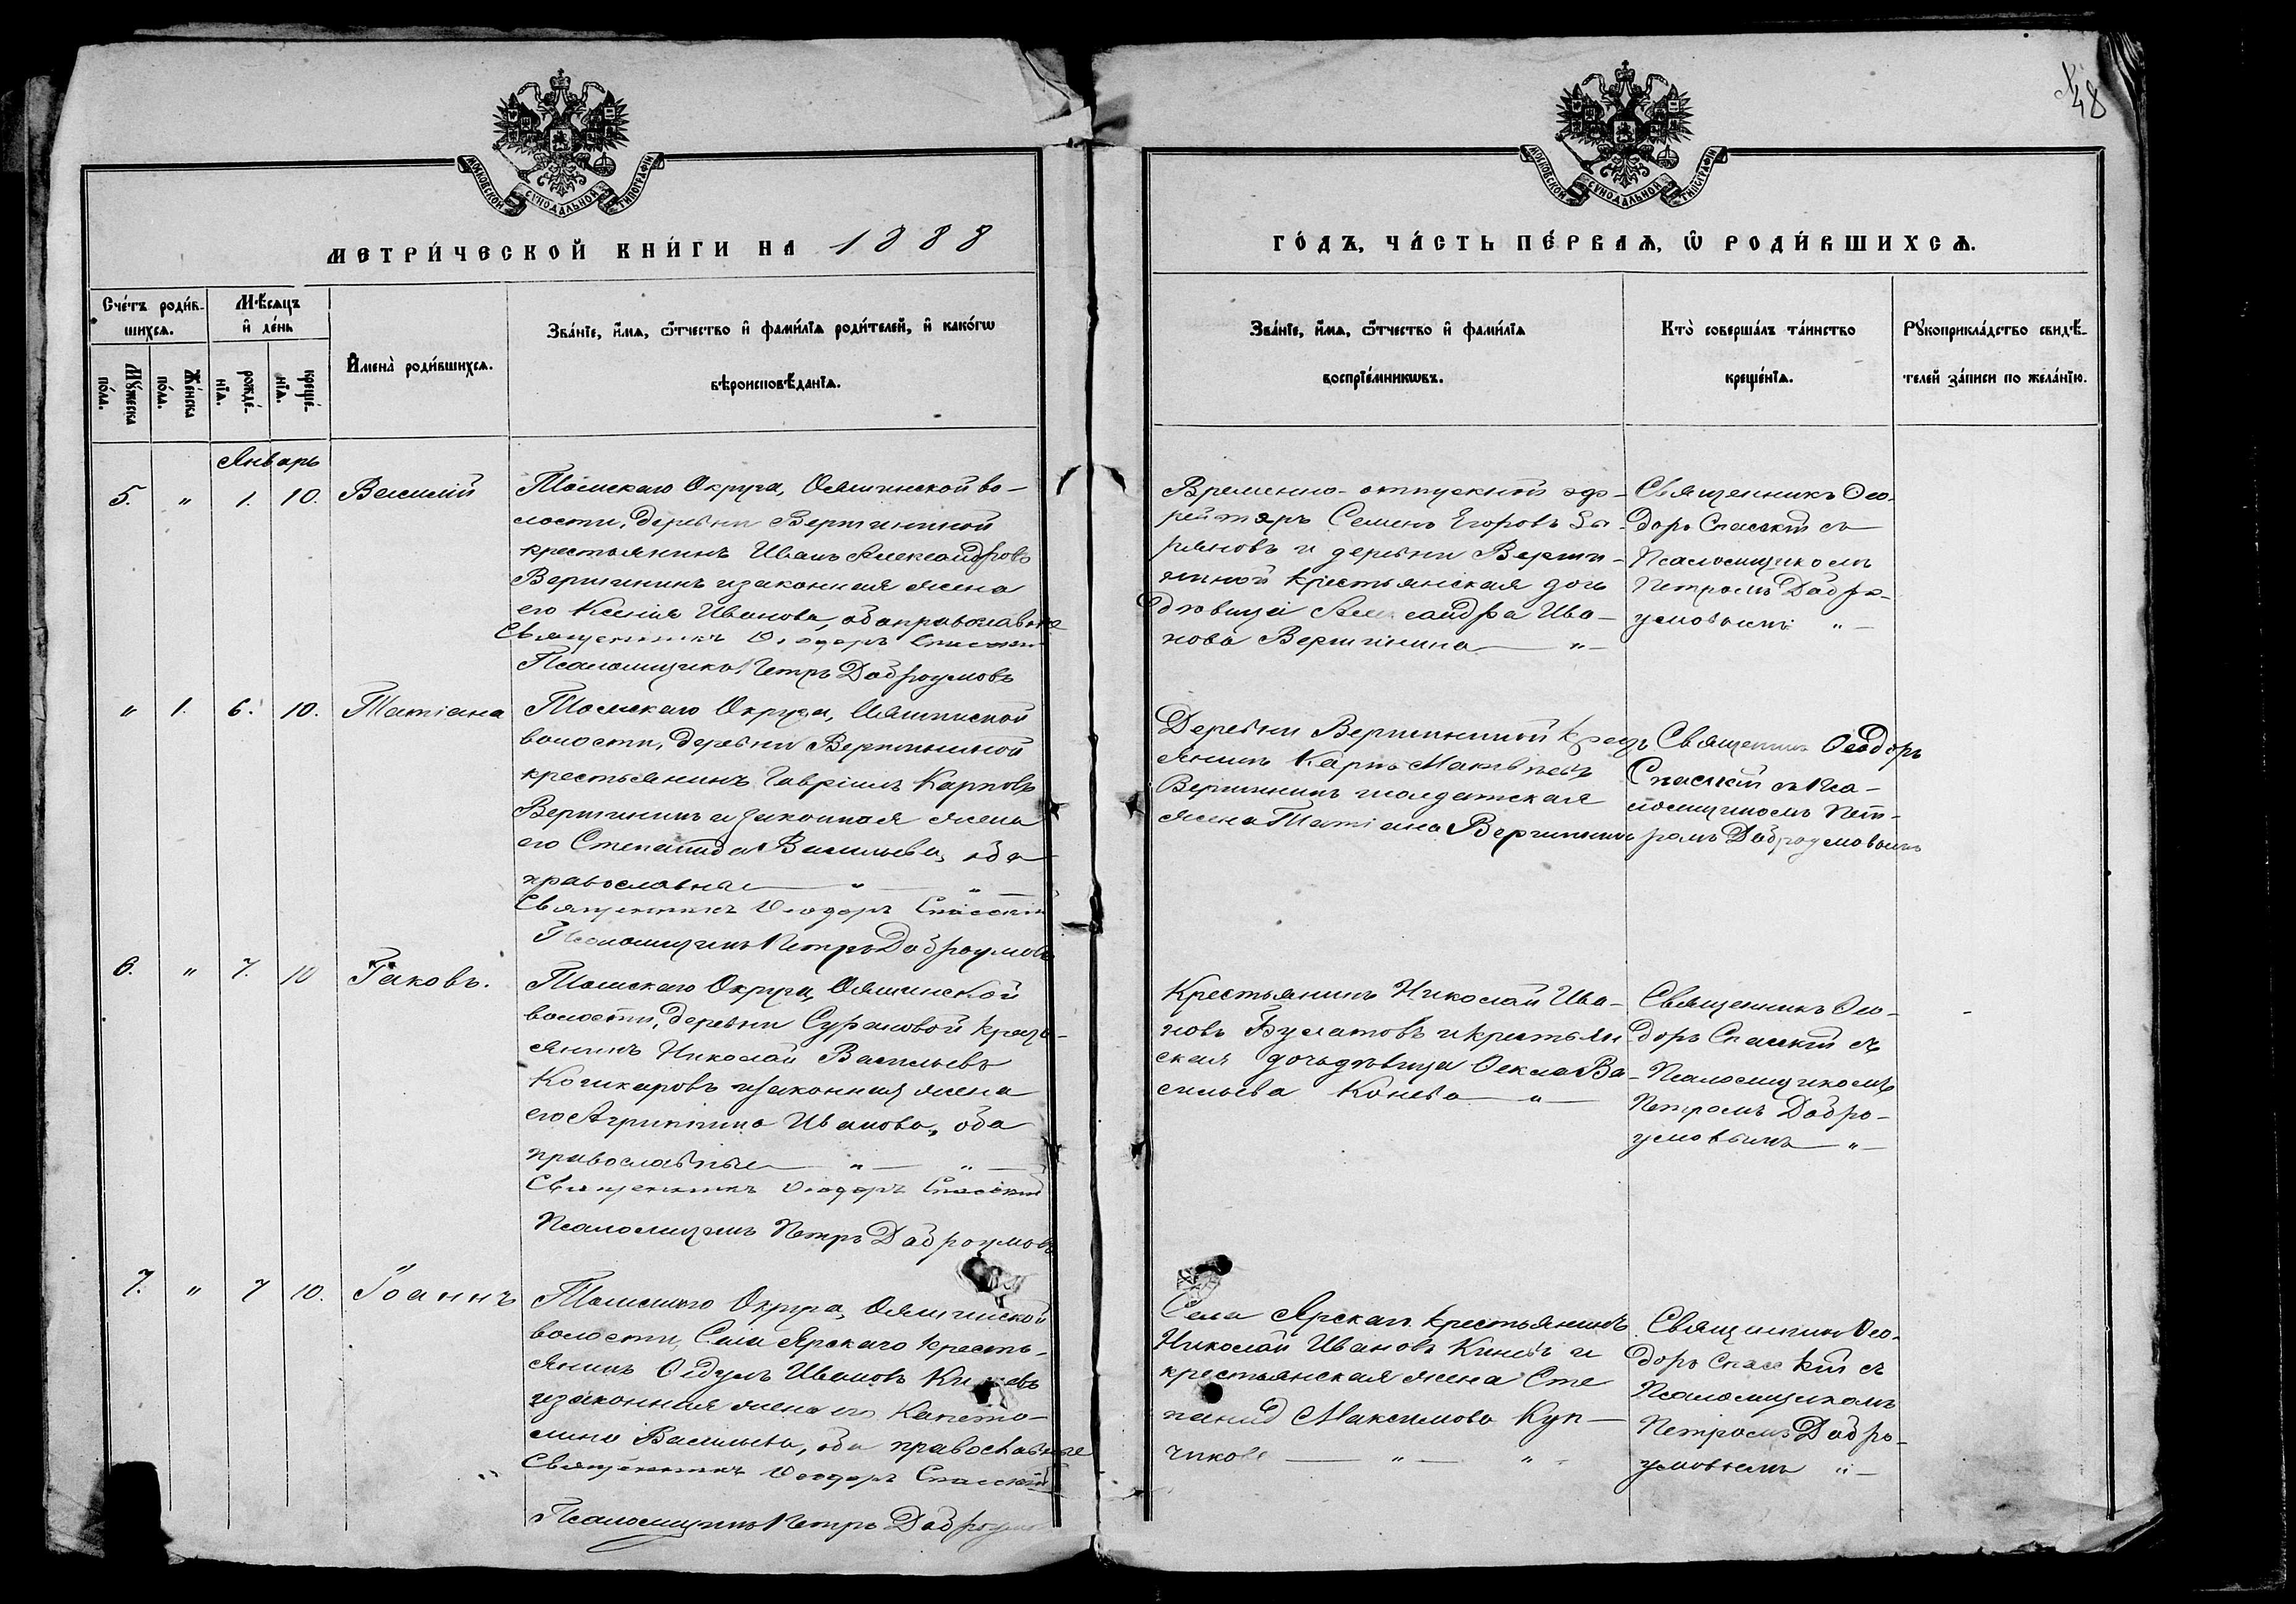 48
МОСКОВСКОЙ СУНОДАЛЬНОЙ ТИПОГРАФІИ
МОСКОВСКОЙ СУНОДАЛЬНОЙ ТИПОГРАФІИ
МЕТРИ́ЧЕСКОЙ КНИ́ГИ НА 1888
ГО́ДЪ, ЧА́СТЬ ПЕ́РВАѦ, Ѡ РОДИ́ВШИХСѦ.
Сче́тъ роди́в-
шихсѧ.
Мѣ́сѧцъ
и҆ де́нь
Мꙋ́жеска
по́ла.
Же́нска
по́ла.
рожде́-
нїѧ.
креще́-
нїѧ.
И҆мена̀ роди́вшихсѧ.
Зва́нїе, и҆́мѧ, ѻ҆́тчество и҆ фамі́лїѧ роди́телей, и҆ како́гѡ
вѣроисповѣ́данїѧ.
Зва́нїе, и҆́мѧ, ѻ҆́тчество и҆ фамі́лїѧ
воспрїе́мникѡвъ.
Кто̀ соверша́лъ та́инство
креще́нїѧ.
Рꙋкоприкла́дство свидѣ́-
телей за́писи по жела́нїю.
Январь
5. " 1. 10. Василій
Томскаго Округа, Ояшинской во-
лости, деревни Вершининой
крестьянинъ Иванъ Александровъ
Вершининъ и законная жена
его Ксенія Иванова, оба православные
Священникъ Ѳеодоръ Спасскій
Псаломщикъ Петръ Доброумовъ
Временно-отпускной еф-
рейторъ Семенъ Егоровъ
и деревни Верши-
ниной крестьянская дочь
дѣвица Александра Ива-
нова Вершинина "
Священникъ Ѳео-
доръ Спасскій съ
Псаломщикомъ
Петромъ Добро-
умовымъ "
" 1. 6. 10. Татіана
Томскаго Округа, Ояшинской
волости, деревни Вершининой
крестьянинъ Гавріилъ Карповъ
Вершининъ и законная жена
его Степанида Васильева, оба
православные " "
Священникъ Ѳеодоръ Спасскій
Псаломщикъ Петръ Доброумовъ
Деревни Вершининой крест-
янинъ Карпъ
Вершининъ и солдатская
жена Татіана Вершинина
Священникъ Ѳеодоръ
Спасскій съ Пса-
ломщикомъ Пет-
ромъ Доброумовымъ
6. " 7. 10 Іаковъ.
Томскаго Округа, Ояшинской
волости, деревни Сурановой крест-
янинъ Николай Васильевъ
Кочкаровъ и законная жена
его Агриппина Иванова, оба
православные " "
Священникъ Ѳеодоръ Спасскій
Псаломщикъ Петръ Доброумовъ
Крестьянинъ Николай Ива-
новъ Булатовъ и крестьян
ская дочь дѣвица Ѳекла Ва-
сильева Конева "
Священникъ Ѳео-
доръ Спасскій съ
Псаломщикомъ
Петромъ Добро-
умовымъ "
7. " 7 10. Іоаннъ
Томскаго Округа, Ояшинской
волости, Села Ярскаго кресть-
янинъ Ѳедулъ Ивановъ
и законная жена его Капито-
лина Васильева, оба православные
Священникъ Ѳеодоръ Спасскій
Псаломщикъ Петръ Доброумовъ
Села Ярскаго крестьянинъ
Николай Ивановъ Киневъ и
крестьянская жена Сте
панида Максимова Куп-
чикова " "
Священникъ Ѳео-
доръ Спасскій съ
Псаломщикомъ
Петромъ Добро-
умовымъ "